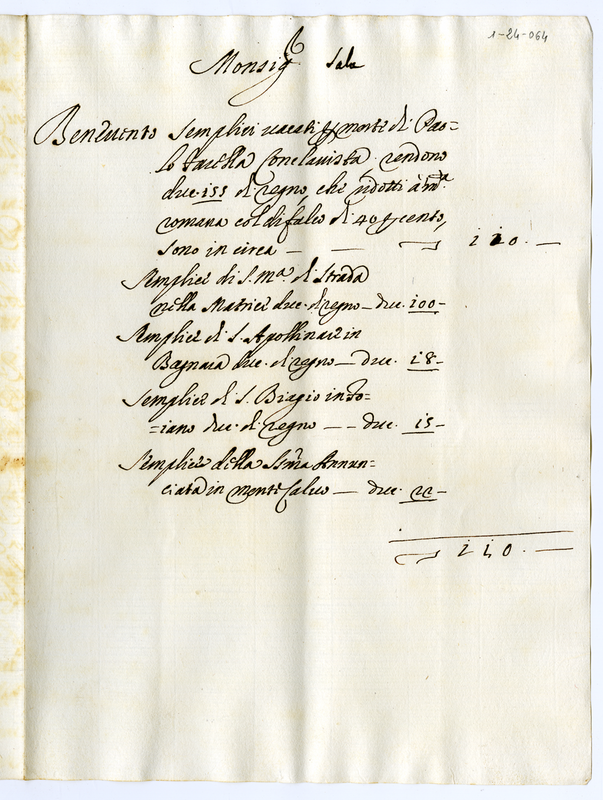 1-24-064
Monsigr Sala
Benevento Semplici vacati per morte di Pao=
lo Conclavista rendono
duc. 155 di regno, che ridotti à mta
romana col difalco di 40 per cento,
sono in circa — — 110. —
Semplice di S. Ma. di Strada
nella Matrice duc. di regno — duc. 100 -
Semplice di S. Apollinare in
Bagnara duc. di regno — duc. 18 -
Semplice di S. Biagio in To=
=iano duc. di regno — — duc. 15 -
Semplice della SSma Annun=
ciata in Monte Calvo — duc. 22 -
110. —